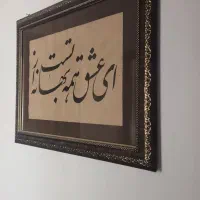 ای عشق همه بهانه از تست